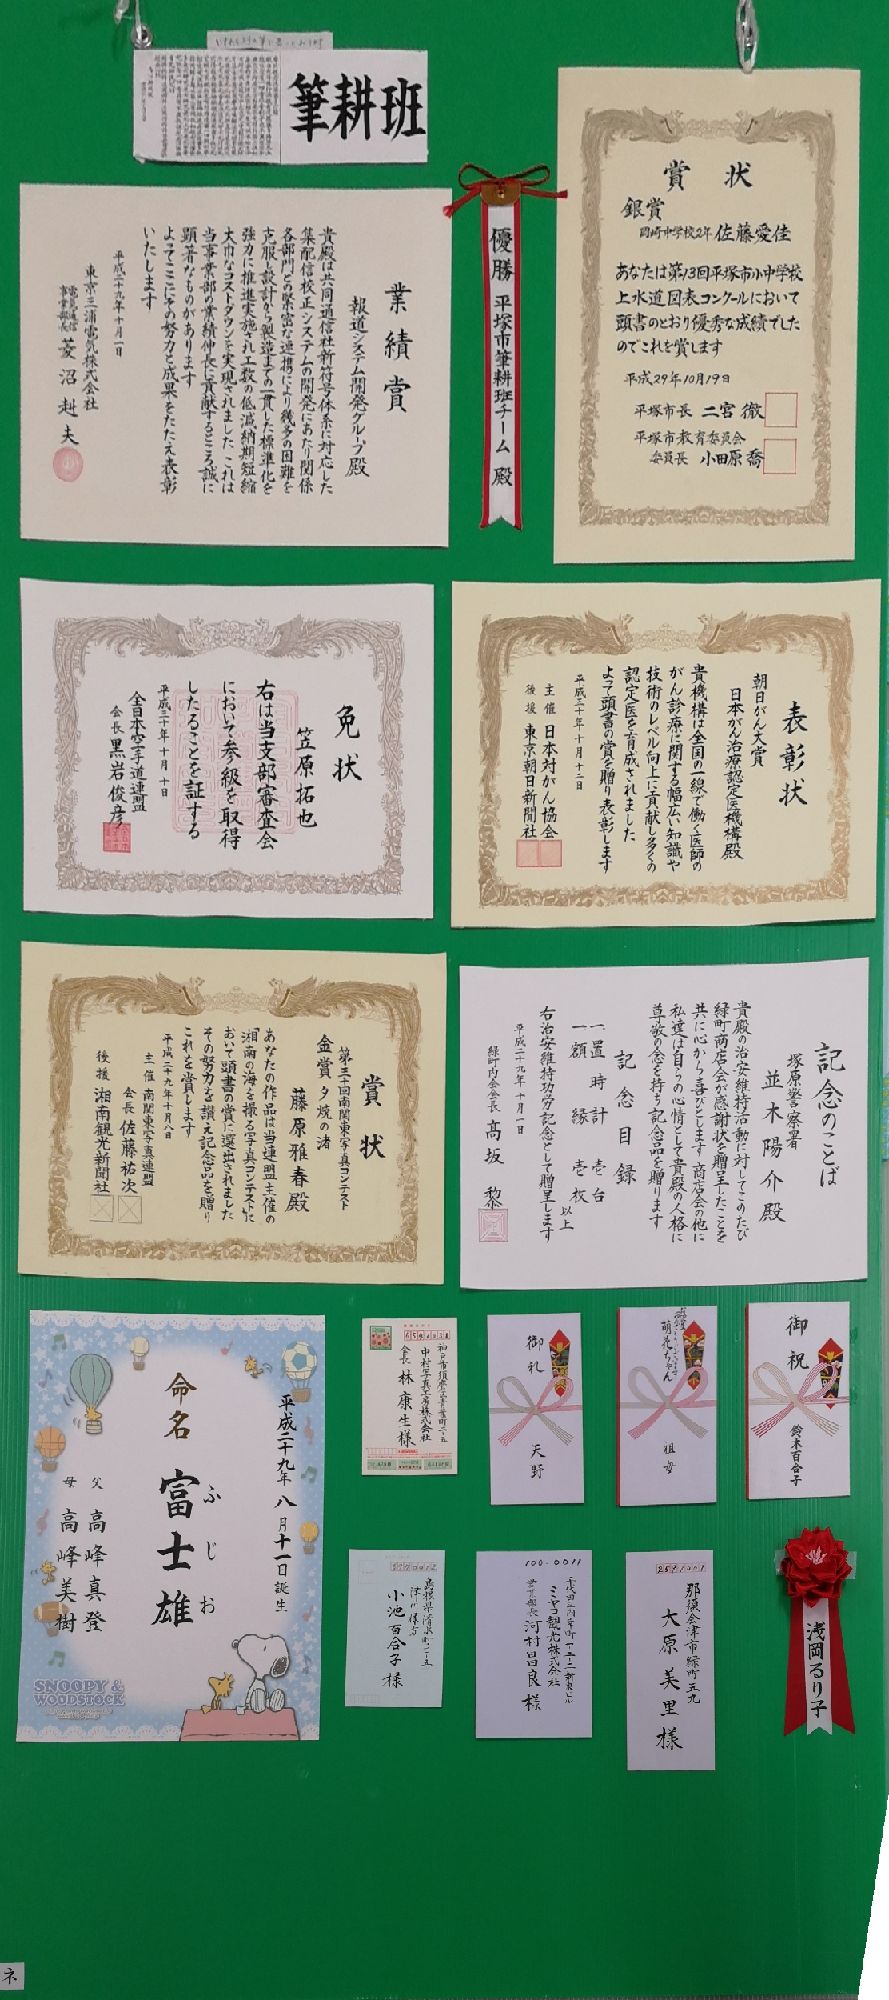 筆耕班
業績賞
報道システム開発グループ殿
貴殿は共同通信社新符号体系に対応した
集配信校正システムの開発にあたり関係
各部門との緊密な連携により幾多の困難を
克服し設計から製造までの一貫した標準化を
強力に推進実施され工数の低減納期短縮
大巾なコストダウンを実現されました これは
当事業部の業績伸長に貢献するところ誠に
顕著なものがあります
よってここにその努力と成果をたたえ表彰
いたします
平成二十九年十月一日
東京三浦電気株式会社
電気通信
事業部長 菱沼赳夫
優勝 平塚市筆耕班チーム 殿
賞状
銀賞
岡崎中学校2年 佐藤愛佳
あなたは第13回平塚市小中学校
上水道図表コンクールにおいて
頭書のとおり優秀な成績でした
のでこれを賞します
平成29年10月19日
平塚市長 二宮徹
平塚市教育委員会
委員長 小田原喬
免状
笠原拓也
右は当支部審査会
において参級を取得
したることを証する
平成三十年十月十日
全日本空手道連盟
会長 黒岩俊彦
表彰状
朝日がん大賞
日本がん治療認定医機構殿
貴機構は全国の一線で働く医師の
がん診療に関する幅広い知識や
技術のレベル向上に貢献し多くの
認定医を育成されました
よって頭書の賞を贈り表彰します
平成三十年十月十二日
主催 日本対がん協会
後援 東京朝日新聞社
賞状
第三十回南関東写真コンテスト
金賞 夕焼の渚
藤原雅春殿
あなたの作品は当連盟主催の
「湘南の海を撮る写真コンテスト」に
おいて頭書の賞に選出されました
その努力を讃え記念品を贈り
これを賞します
平成二十九年十月八日
主催 南関東写真連盟
会長 佐藤祐次
後援 湘南観光新聞社
記念のことば
塚原警察署
並木陽介殿
貴殿の治安維持活動に対してこのたび
緑町商店会が感謝状を贈呈したことを
共に心から喜びとします 商店会の他に
私達は自らの心情として貴殿の人格に
尊敬の念を持ち記念品を贈ります
記念目録
一置時計 壱台
一額縁 壱枚
以上
右治安維持功労記念として贈呈します
平成二十九年十月一日
緑町内会会長 高坂 黎
平成二十九年八月十一日誕生
命名 富士雄
ふじお
父 高峰真登
母 高峰美樹
SNOOPY &
WOODSTOCK
中村写真工房株式会社
会長 林康生様
御礼
天野
萌花ちゃん
祖母
御祝
鈴木百合子
小池百合子様
100-0011
ミヤコ観光株式会社
営業部長 河村昌良様
那須会津市緑町五九
大原美里様
浅岡るり子
ネ